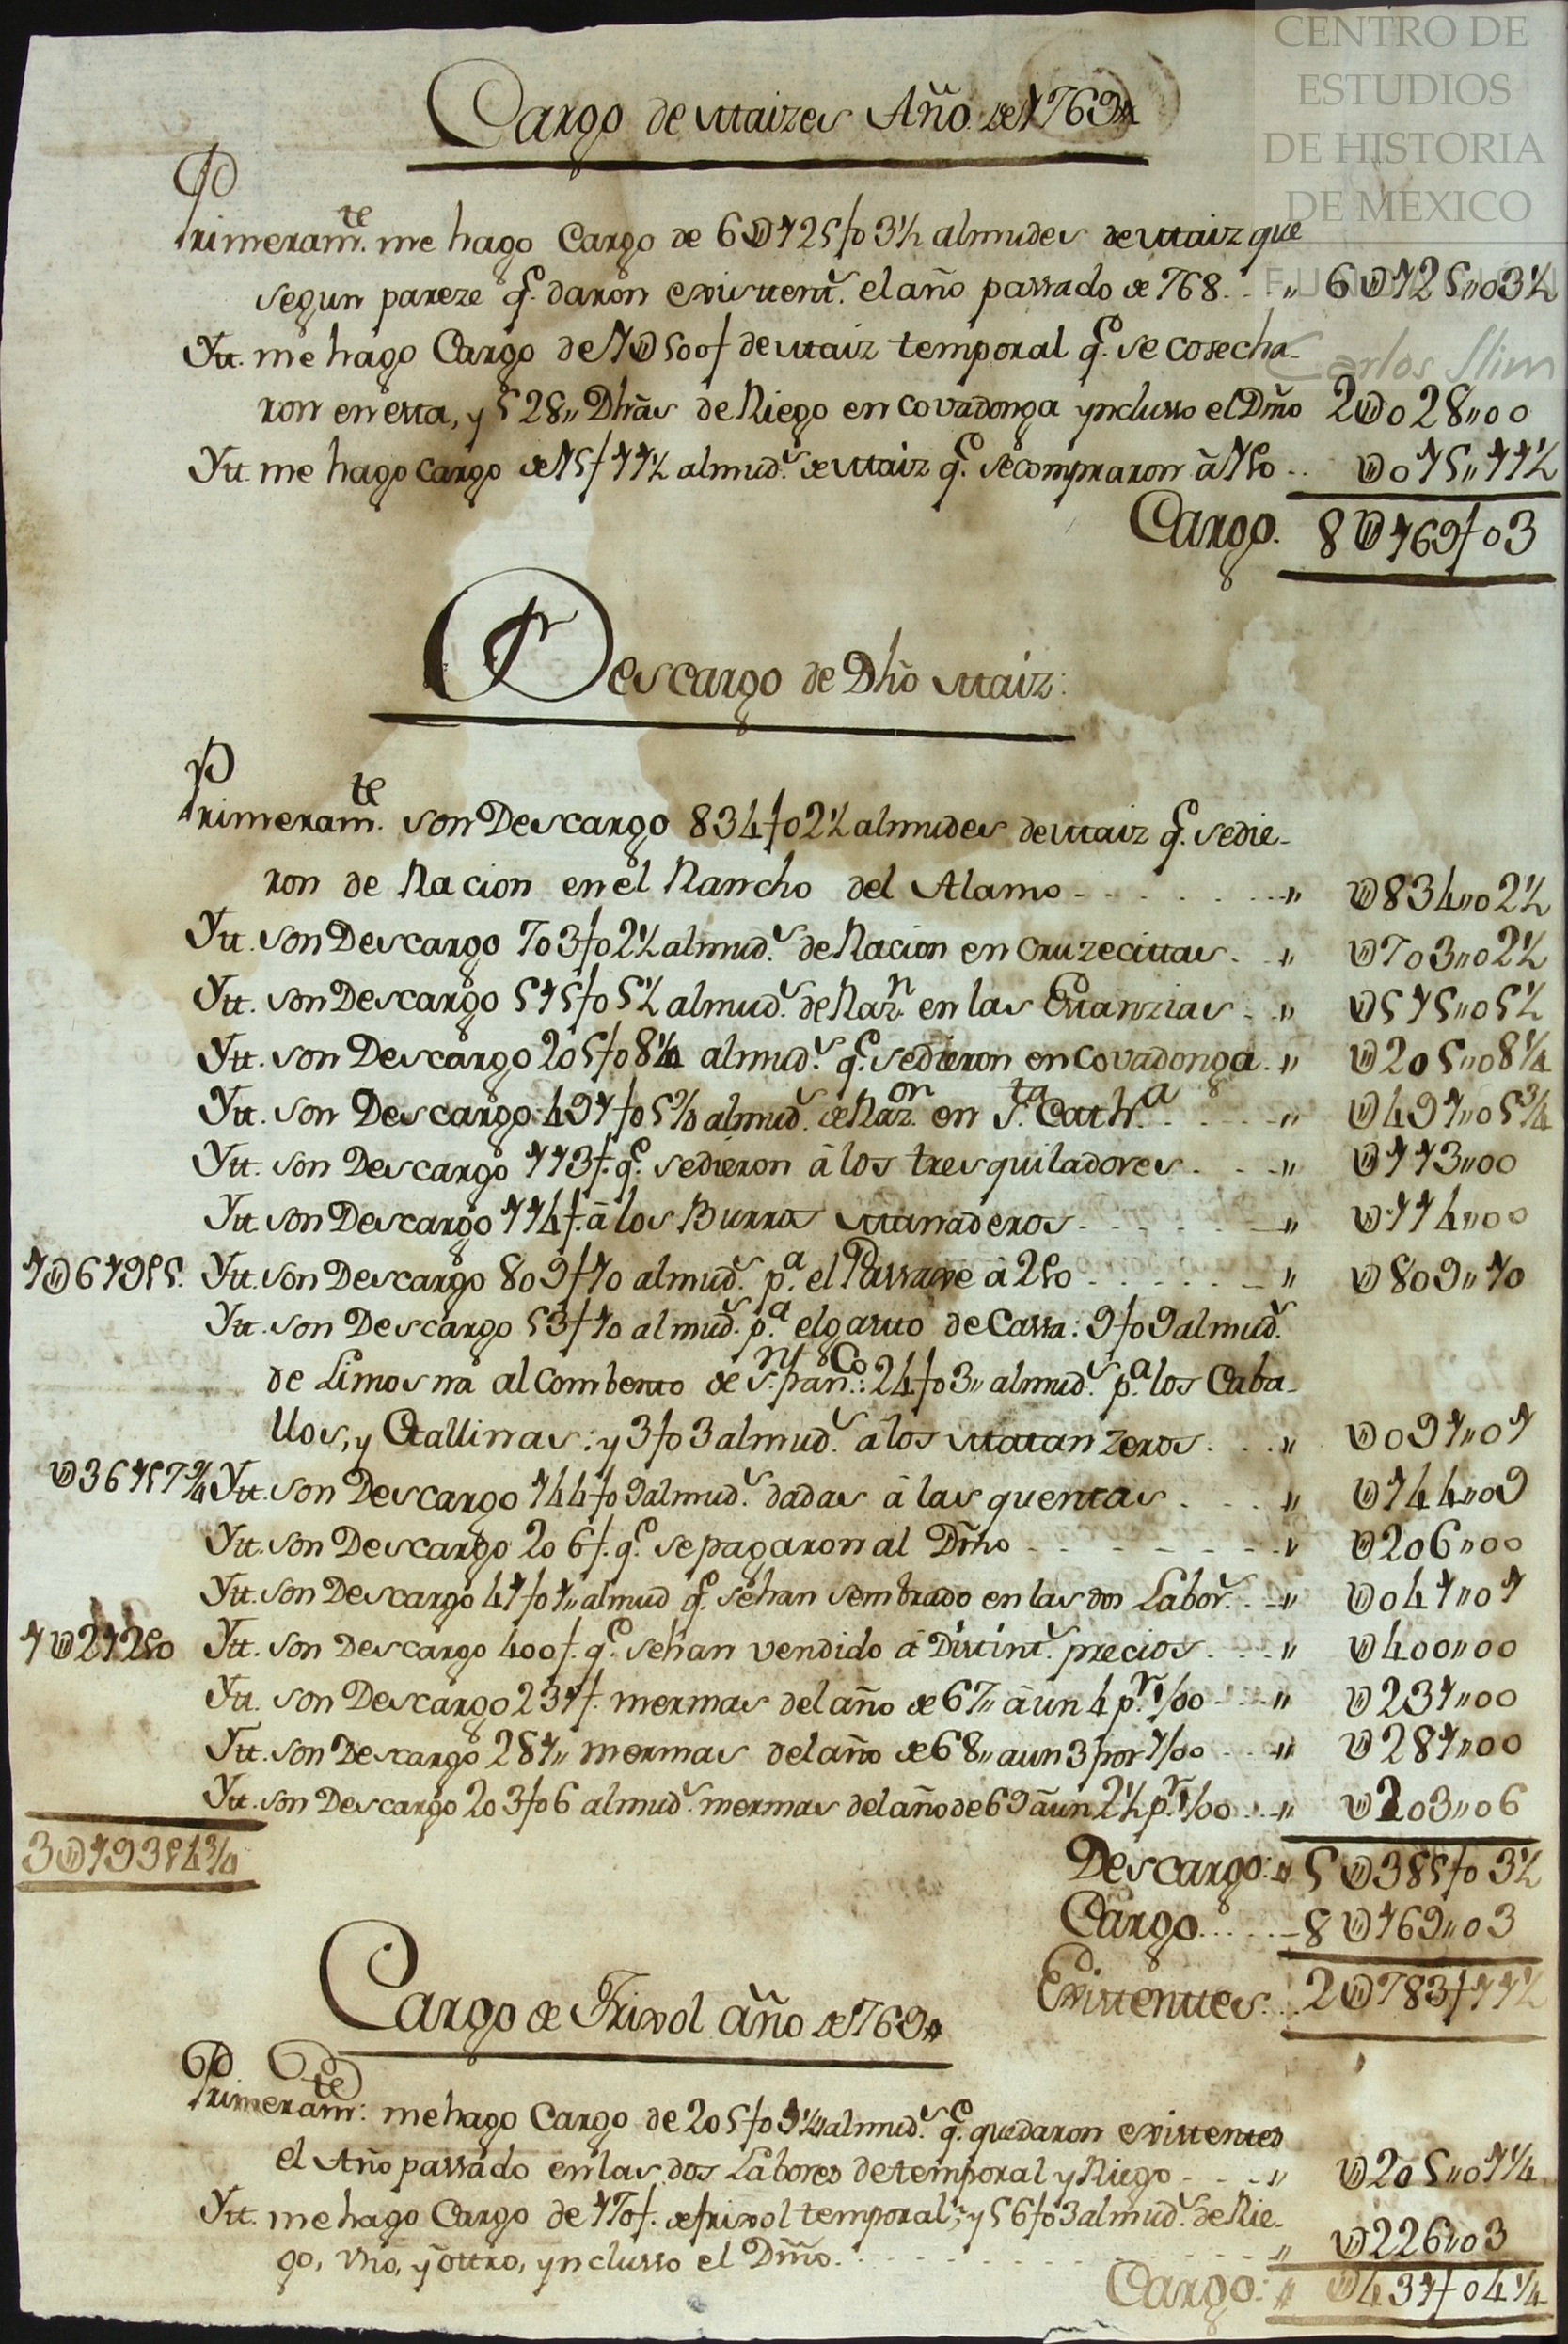 CENTRO DE
ESTUDIOS
DE HISTORIA
DE MÉXICO
Carlos Slim
Cargo de Maizes Año de 1769
Primeram.te me hago Cargo de 6U125f03½ almudes de Maiz que
segun pareze q.e daron existent.s el año passado de 768. . „ 6U125„03½
Ytt. me hago Cargo de 1U500f de Maiz temporal q.e se cosecha-
ron en esta, y 528„ Dhãs de Riego en covadonga yncluso el Dmõ 2U028„00
Ytt. me hago cargo de 15f11½ almud.s de Maiz q.e se compraron â 1 50 . . U015„11½
Cargo. 8U169f03
Descargo de Dhõ Maiz:
Primeram.te son Descargo 834f02½ almudes de Maiz q.e se die-
ron de Racion en el Rancho del Alamo - . . . . . „ U834„02½
Ytt. son Descargo 703f02½ almud.s de Racion en Cruzecittas . „ U703„02½
Ytt. son Descargo 515f05½ almud.s de Raz.n en las Estanzias . „ U515„05½
Ytt. son Descargo 205f08¼ almud.s q.e se dieron en Covadonga . „ U205„08¼
Ytt. son Descargo 491f05¾ almud.s de Raz.on en S.ta Cath.a . . . „ U491„05¾
Ytt. son Descargo 113f. q.e se dieron â los tresquiladores . . „ U113„00
Ytt. son Descargo 114f. â los Burros Manaderos . . . . „ U114„00
1U619 55. Ytt. son Descargo 809f10 almud.s p.a el Passage â 2 50 . . . . „ U809„10
Ytt. son Descargo 53f10 almud.s p.a el gasto de Cassa: 9f09 almud.s
de Limosna al Combento de S.n Fran.co: 24f03„ almud.s p.a los Caba-
llos, y Gallinas: y 3f03 almud.s a los Matanzeros . . . „ U091„01
U361 57¾ Ytt. son Descargo 144f09 almud.s dadas â las quentas . . . „ U144„09
Ytt. son Descargo 206f. q.e se pagaron al Dmõ - - - - - - „ U206„00
Ytt. son Descargo 41f01„ almud q.e se han sembrado en las dos Labor.s . „ U041„01
1U212 50 Ytt. son Descargo 400f. q.e se han vendido â Distint.s precios . . . „ U400„00
Ytt. son Descargo 231f. mermas del año de 67„ â un 4 p.r 1/00 . . . „ U231„00
Ytt. son Descargo 281„ mermas del año de 68„ a un 3 por 1/00 . . „ U281„00
Ytt. son Descargo 203f06 almud.s mermas del año de 69 â un 2½ p.r 1/00 . . „ U203„06
3U193 54¾
Descargo: „ 5U385f03½
Cargo. . . . . - 8U169„03
Existenttes. . . 2U783f11½
Cargo de Frixol año de 769
Primeram.te: me hago Cargo de 205f01¼ almud.s q.e quedaron existentes
el Año passado en las dos Labores de temporal y Riego - . . - „ U205„01¼
Ytt. me hago Cargo de 170f. de frixol temporal; y 56f03 almud.s de Rie-
go, vno, y ottro, yncluso el Dmõ. . . . . . . „ U226„03
Cargo: „ U431f04¼